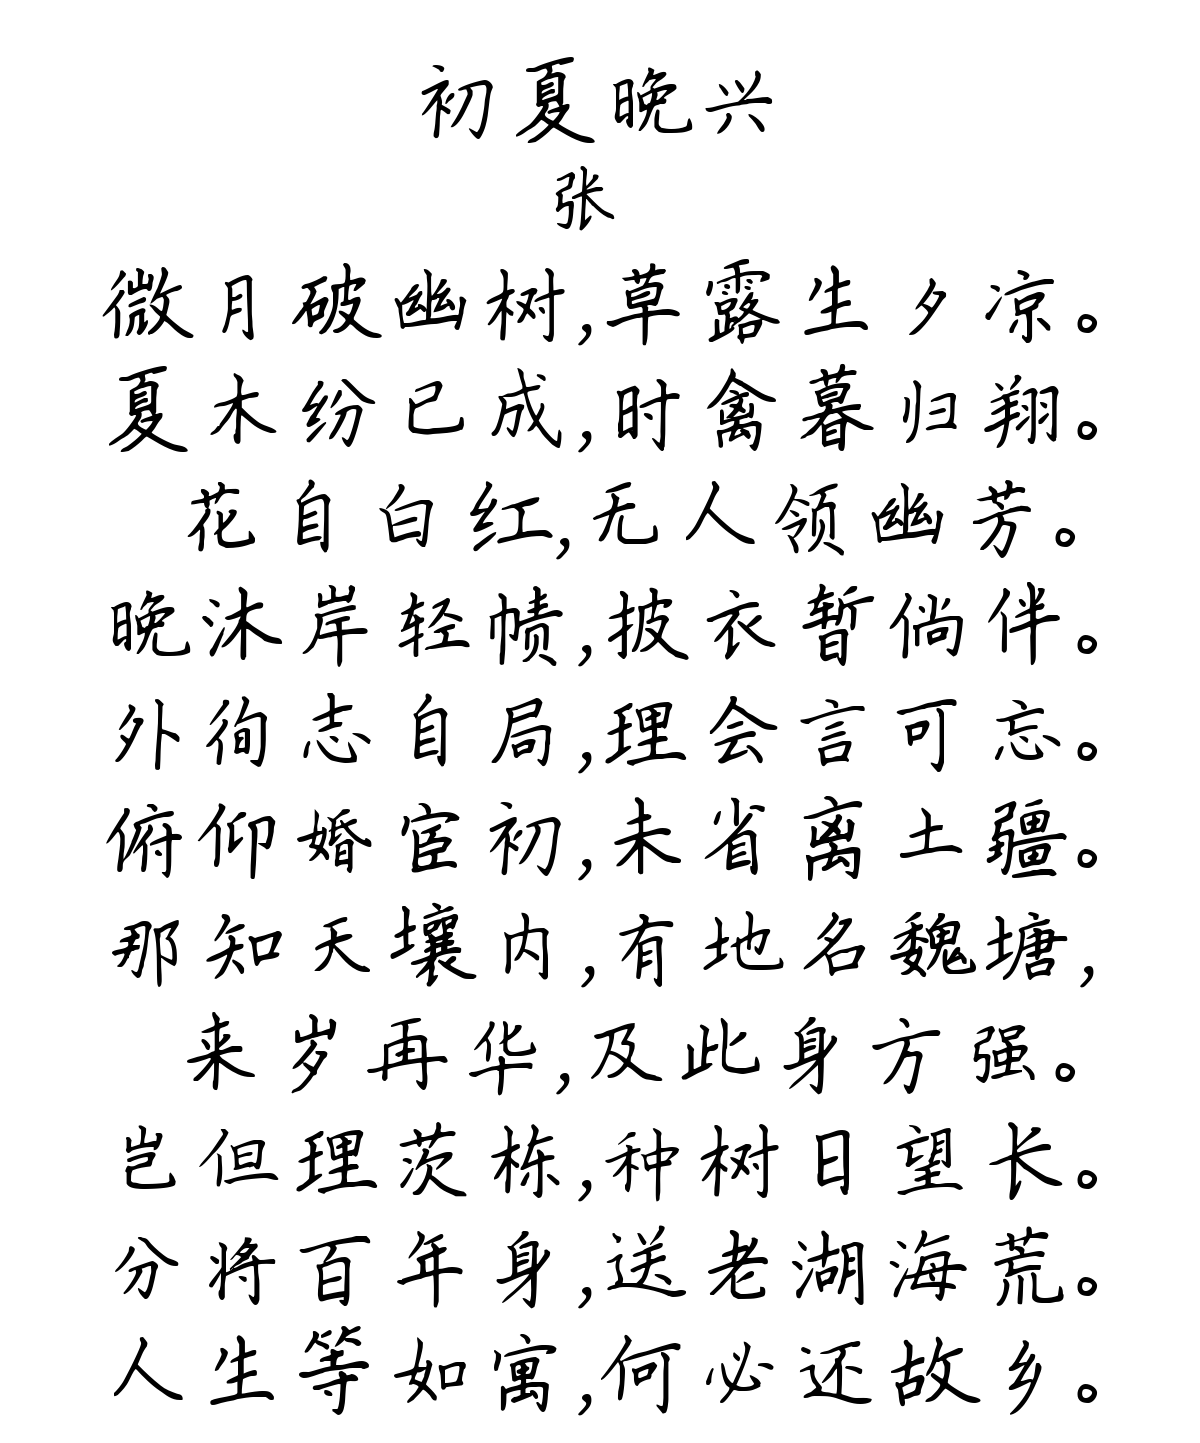 初夏晚兴
张
微月破幽树,草露生夕凉。
夏木纷已成,时禽暮归翔。
花自白红,无人领幽芳。
晚沐岸轻帻,披衣暂倘伴。
外徇志自局,理会言可忘。
俯仰婚宦初,未省离土疆。
那知天壤内,有地名魏塘,
来岁再华,及此身方强。
岂但理茨栋,种树日望长。
分将百年身,送老湖海荒。
人生等如寓,何必还故乡。